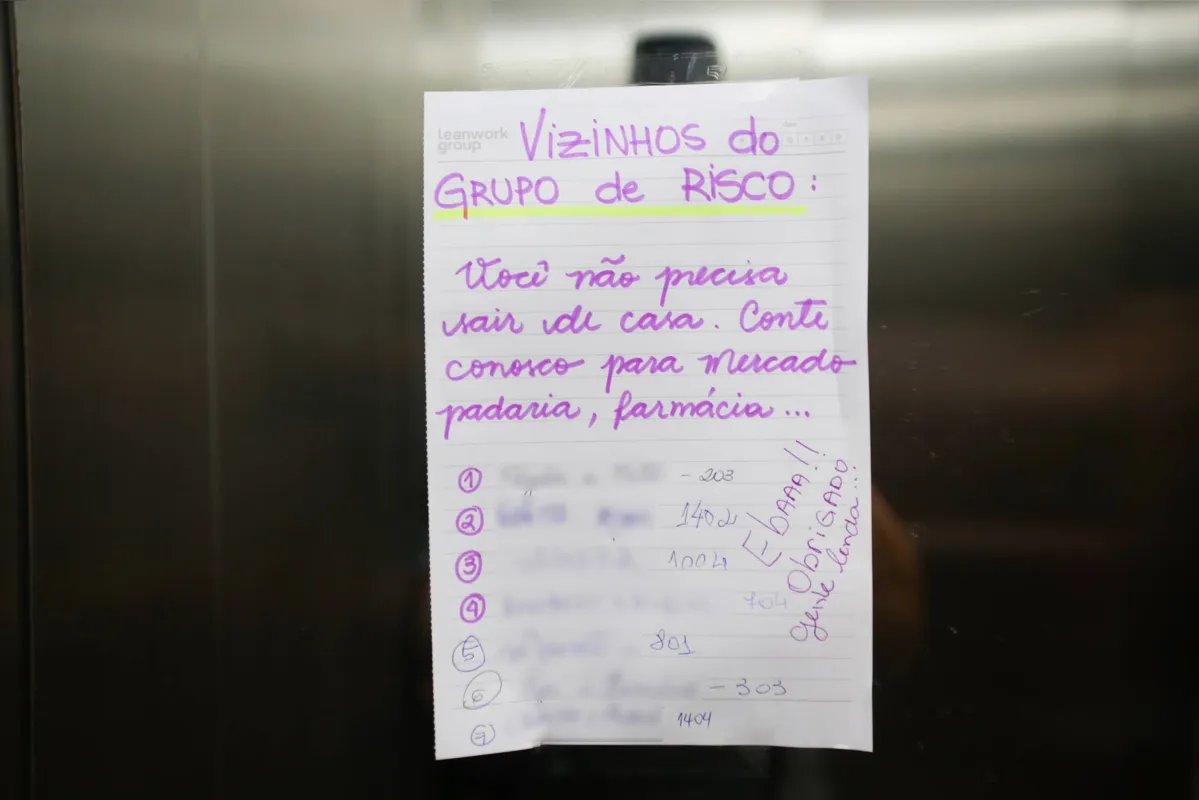 leanwork
group
VIZINHOS do
GRUPO de RISCO:
Você não precisa
sair de casa. Conte
conosco para mercado
padaria, farmácia...
1 - 203
2 1402
3 1004
4 704
5 801
6 - 303
7 1404
EbAAA!!
ObriGADO
gente linda...